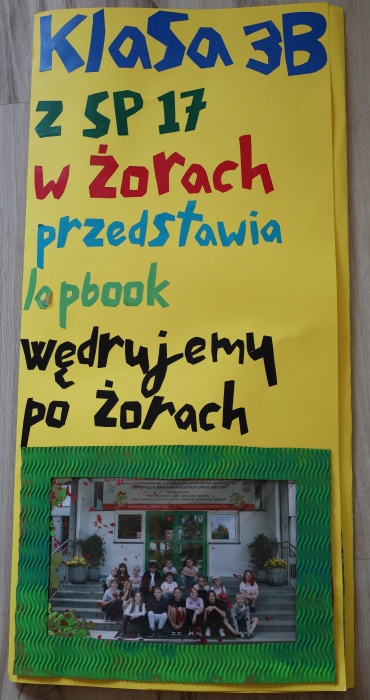 Klasa 3B
z SP 17
w Żorach
przedstawia
lapbook
wędrujemy
po Żorach